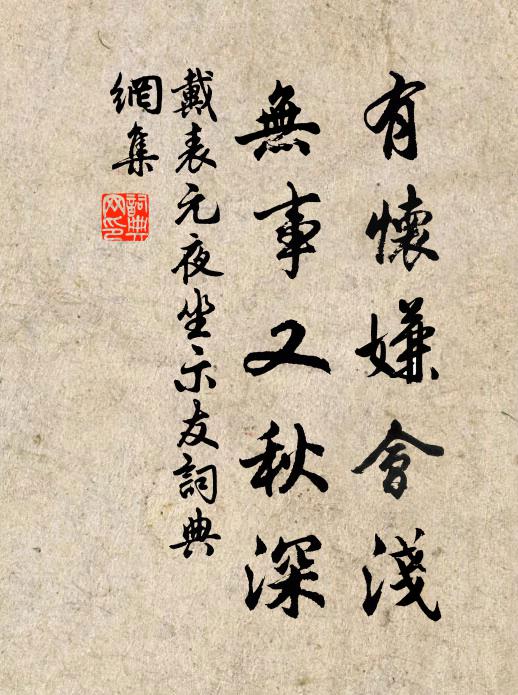 有懷嫌會淺
無事又秋深
戴表元夜坐示友詞典
網集
詞典網印